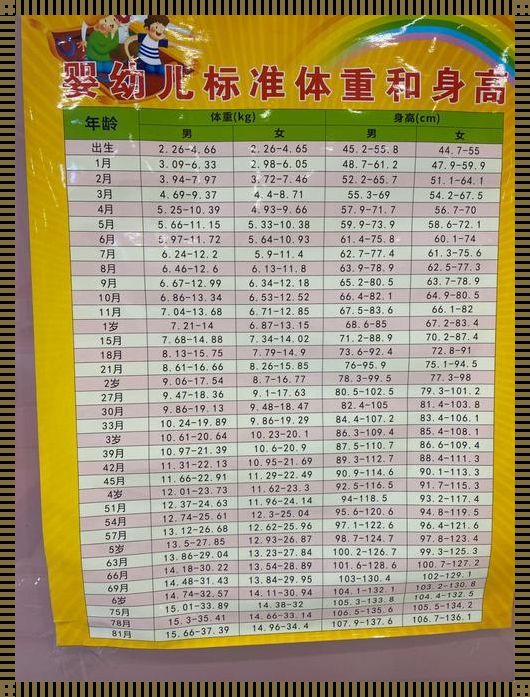 婴幼儿标准体重和身高
年龄 体重(kg) 身高(cm)
男 女 男 女
出生 2.26-4.66 2.26-4.65 45.2-55.8 44.7-55
1月 3.09-6.33 2.98-6.05 48.7-61.2 47.9-59.9
2月 3.94-7.97 3.72-7.46 52.2-65.7 51.1-64.1
3月 4.69-9.37 4.4-8.71 55.3-69 54.2-67.5
4月 5.25-10.39 4.93-9.66 57.9-71.7 56.7-70
5月 5.66-11.15 5.33-10.38 59.9-73.9 58.6-72.1
6月 5.97-11.72 5.64-10.93 61.4-75.8 60.1-74
7月 6.24-12.2 5.9-11.4 62.7-77.4 61.3-75.6
8月 6.46-12.6 6.13-11.8 63.9-78.9 62.5-77.3
9月 6.67-12.99 6.34-12.18 65.2-80.5 63.7-78.9
10月 6.86-13.34 6.53-12.52 66.4-82.1 64.9-80.5
11月 7.04-13.68 6.71-12.85 67.5-83.6 66.1-82
1岁 7.21-14 6.87-13.15 68.6-85 67.2-83.4
15月 7.68-14.88 7.34-14.02 71.2-88.9 70.2-87.4
18月 8.13-15.75 7.79-14.9 73.6-92.4 72.8-91
21月 8.61-16.66 8.26-15.85 76-95.9 75.1-94.5
2岁 9.06-17.54 8.7-16.77 78.3-99.5 77.3-98
27月 9.47-18.36 9.1-17.63 80.5-102.5 79.3-101.2
30月 9.86-19.13 9.48-18.47 82.4-105 81.4-103.8
33月 10.24-19.89 9.86-19.29 84.4-107.2 83.4-106.1
3岁 10.61-20.64 10.23-20.1 86.3-109.4 85.4-108.1
39月 10.97-21.39 10.6-20.9 87.5-110.7 86.6-109.4
42月 11.31-22.13 10.95-21.69 89.3-112.7 88.4-111.3
45月 11.66-22.91 11.29-22.49 90.9-114.6 90.1-113.3
4岁 12.01-23.73 11.62-23.3 92.5-116.5 91.7-115.3
51月 12.37-24.63 11.96-24.14 94-118.5 93.2-117.4
54月 12.74-25.61 12.3-25.04 95.6-120.6 94.8-119.5
57月 13.12-26.68 12.62-25.96 97.1-122.6 96.4-121.6
5岁 13.5-27.85 12.93-26.87 98.7-124.7 97.8-123.4
63月 13.86-29.04 13.23-27.84 100.2-126.7 99.3-125.3
66月 14.18-30.22 13.54-28.89 101.6-128.6 100.7-127.2
69月 14.48-31.43 13.84-29.95 103-130.4 102-129.1
6岁 14.74-32.57 14.11-30.94 104.1-132.1 103.2-130.8
75月 15.01-33.89 14.38-32 105.3-133.8 104.4-132.5
78月 15.3-35.41 14.66-33.14 106.5-135.6 105.5-134.2
81月 15.66-37.39 14.96-34.4 107.9-137.6 106.7-136.1